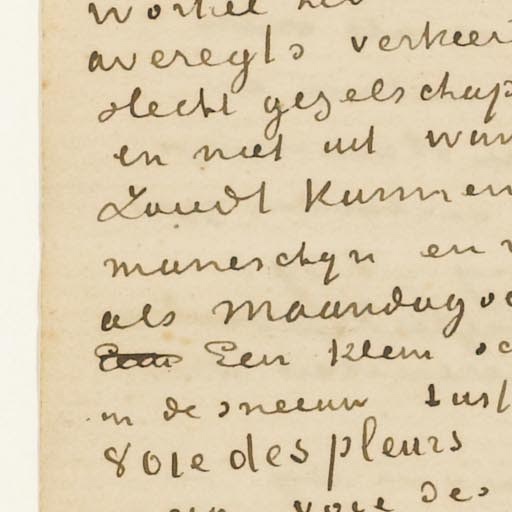 averegts verkeer
slecht gezelschap
en niet uit wan
Zoudt Kunnen
maneschyn en
als Maandag
Een Klein
in de sneeuw
Voie des pleurs
voie des